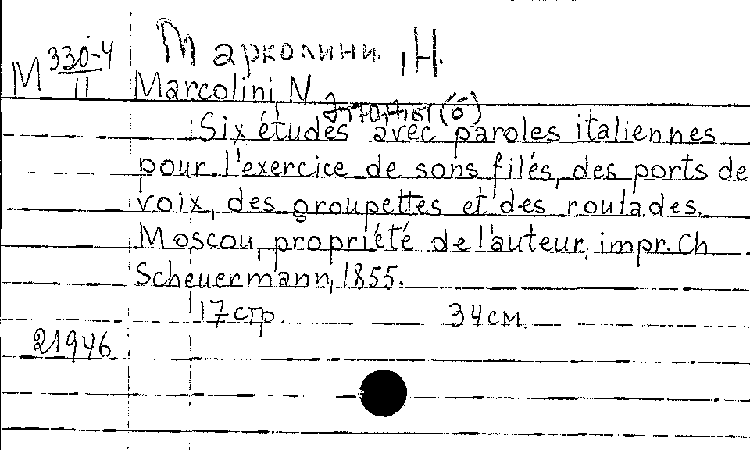 М 330-4
II
Марколини, Н.
Marcolini, N
Этюды (6)
Six études avec paroles italiennes
pour l'exercice de sons filés, des ports de
voix, des groupettes et des roulades.
Moscou, propriété de l'auteur, impr. Ch
Scheuermann, 1855.
17 стр. 34 см.
21946